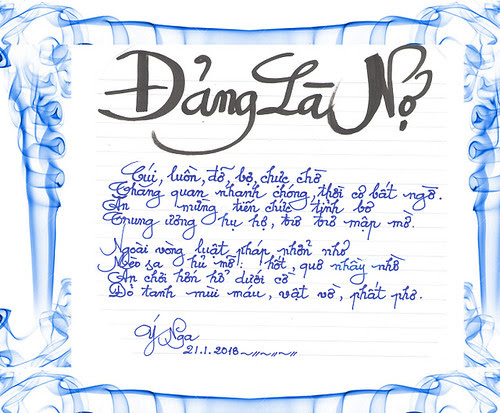 Đảng Là Nợ
Cúi, luồn, đỡ, bợ, chực chờ
Thăng quan nhanh chóng, thời cơ bất ngờ.
Ăn mừng tiến chức tỉnh bơ
Trung ương hụ hợ, trơ trơ mập mờ.
Ngoài vòng luật pháp nhởn nhơ
Mèo sa hủ mỡ! hốt, quơ nhầy nhờ
Ăn chơi hớn hở dưới cờ
Đỏ tanh mùi máu, vật vờ, phất phơ.
Ý Nga
21.1.2018